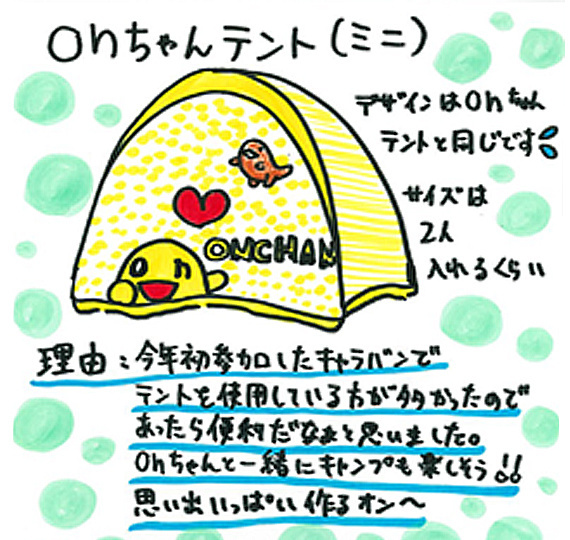 onちゃんテント(ミニ)
デザインはonちゃん
テントと同じです
サイズは
2人
入れるくらい
on
ONCHAN
理由:今年初参加したキャラバンで
テントを使用している方が多かったので
あったら便利だなぁと思いました。
onちゃんと一緒にキャンプも楽しそう!!
思い出いっぱい作るオン〜